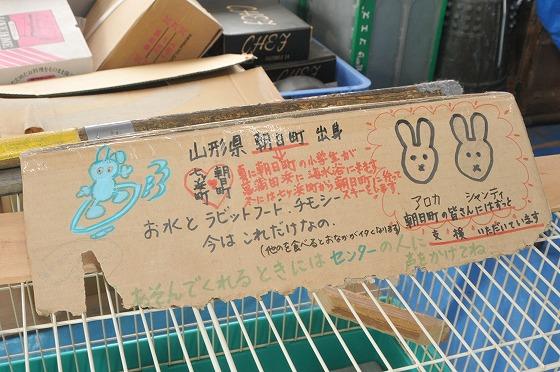 CHEF
CHEF
山形県 朝日町 出身
七ヶ浜町
朝日町
夏に朝日町の小学生が
菖蒲田浜に海水浴に来ます
冬には七ヶ浜町から朝日町に行って
スキーをします
お水とラビットフード、チモシー
今はこれだけなの.
(他のを食べるとおなかがイタくなります)
アロカ シャンティ
朝日町の皆さんにはずっと
支援いただいています
あそんでくれるときにはセンターの人に
声をかけてね